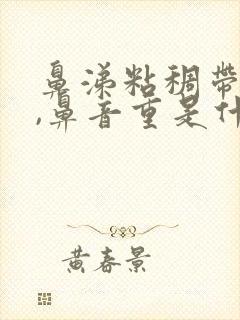 鼻涕粘稠带
,鼻音重是什
黄春景